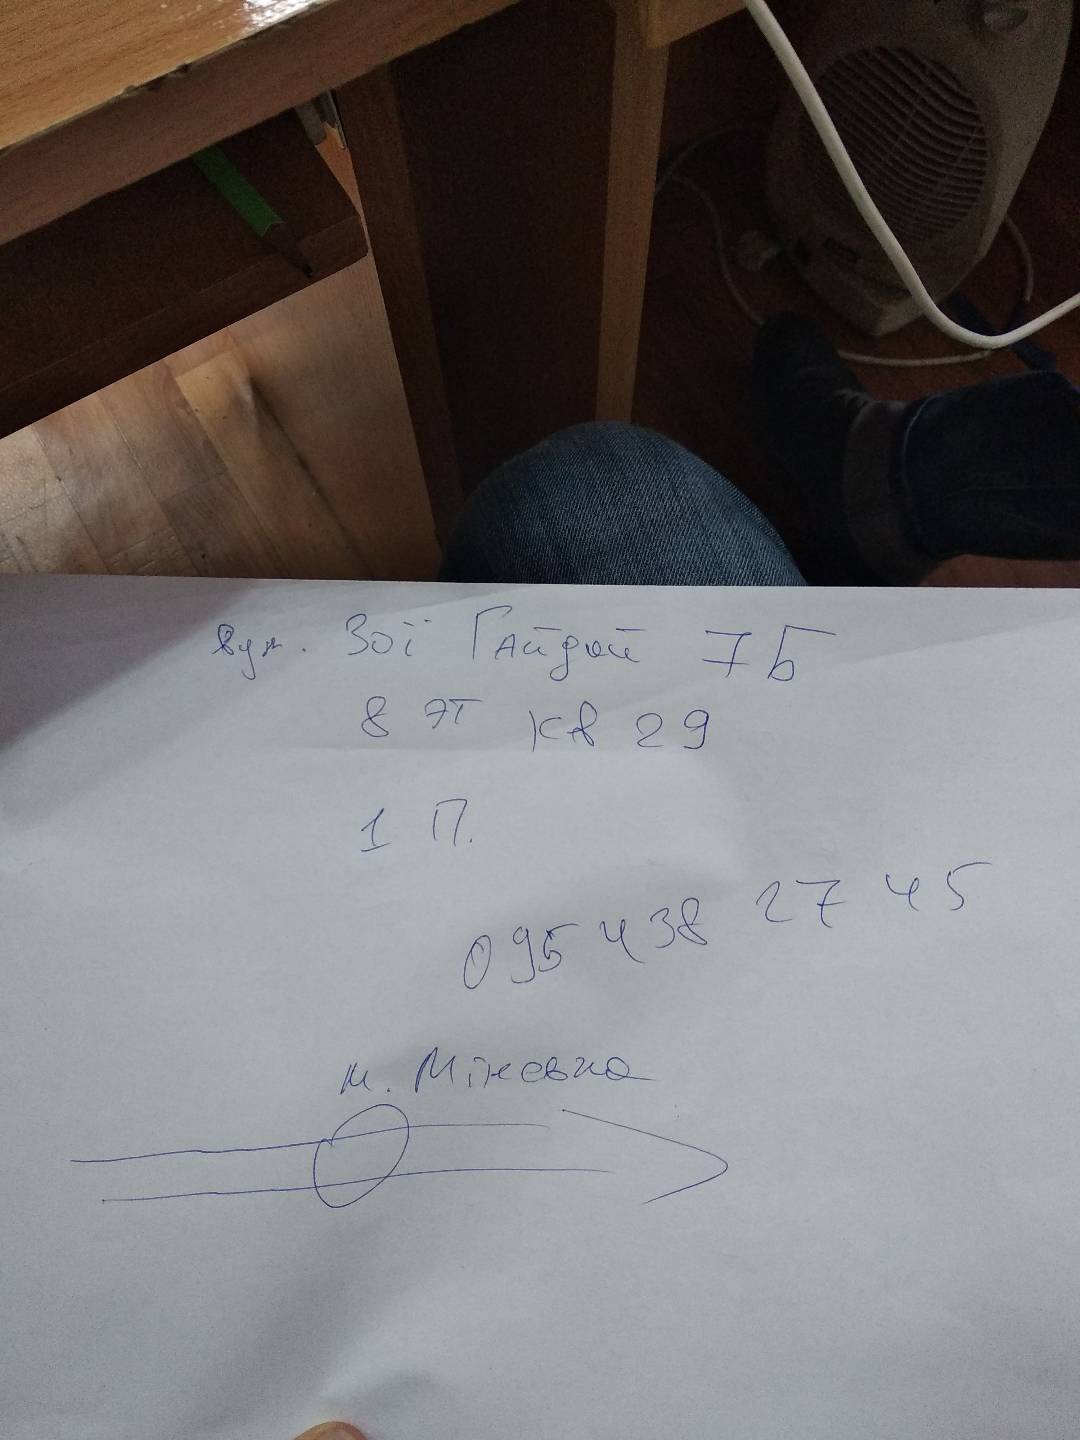 вул. Зої Гайдай 7Б
8 эт кв 29
1 П.
095 438 27 45
м. Мінська